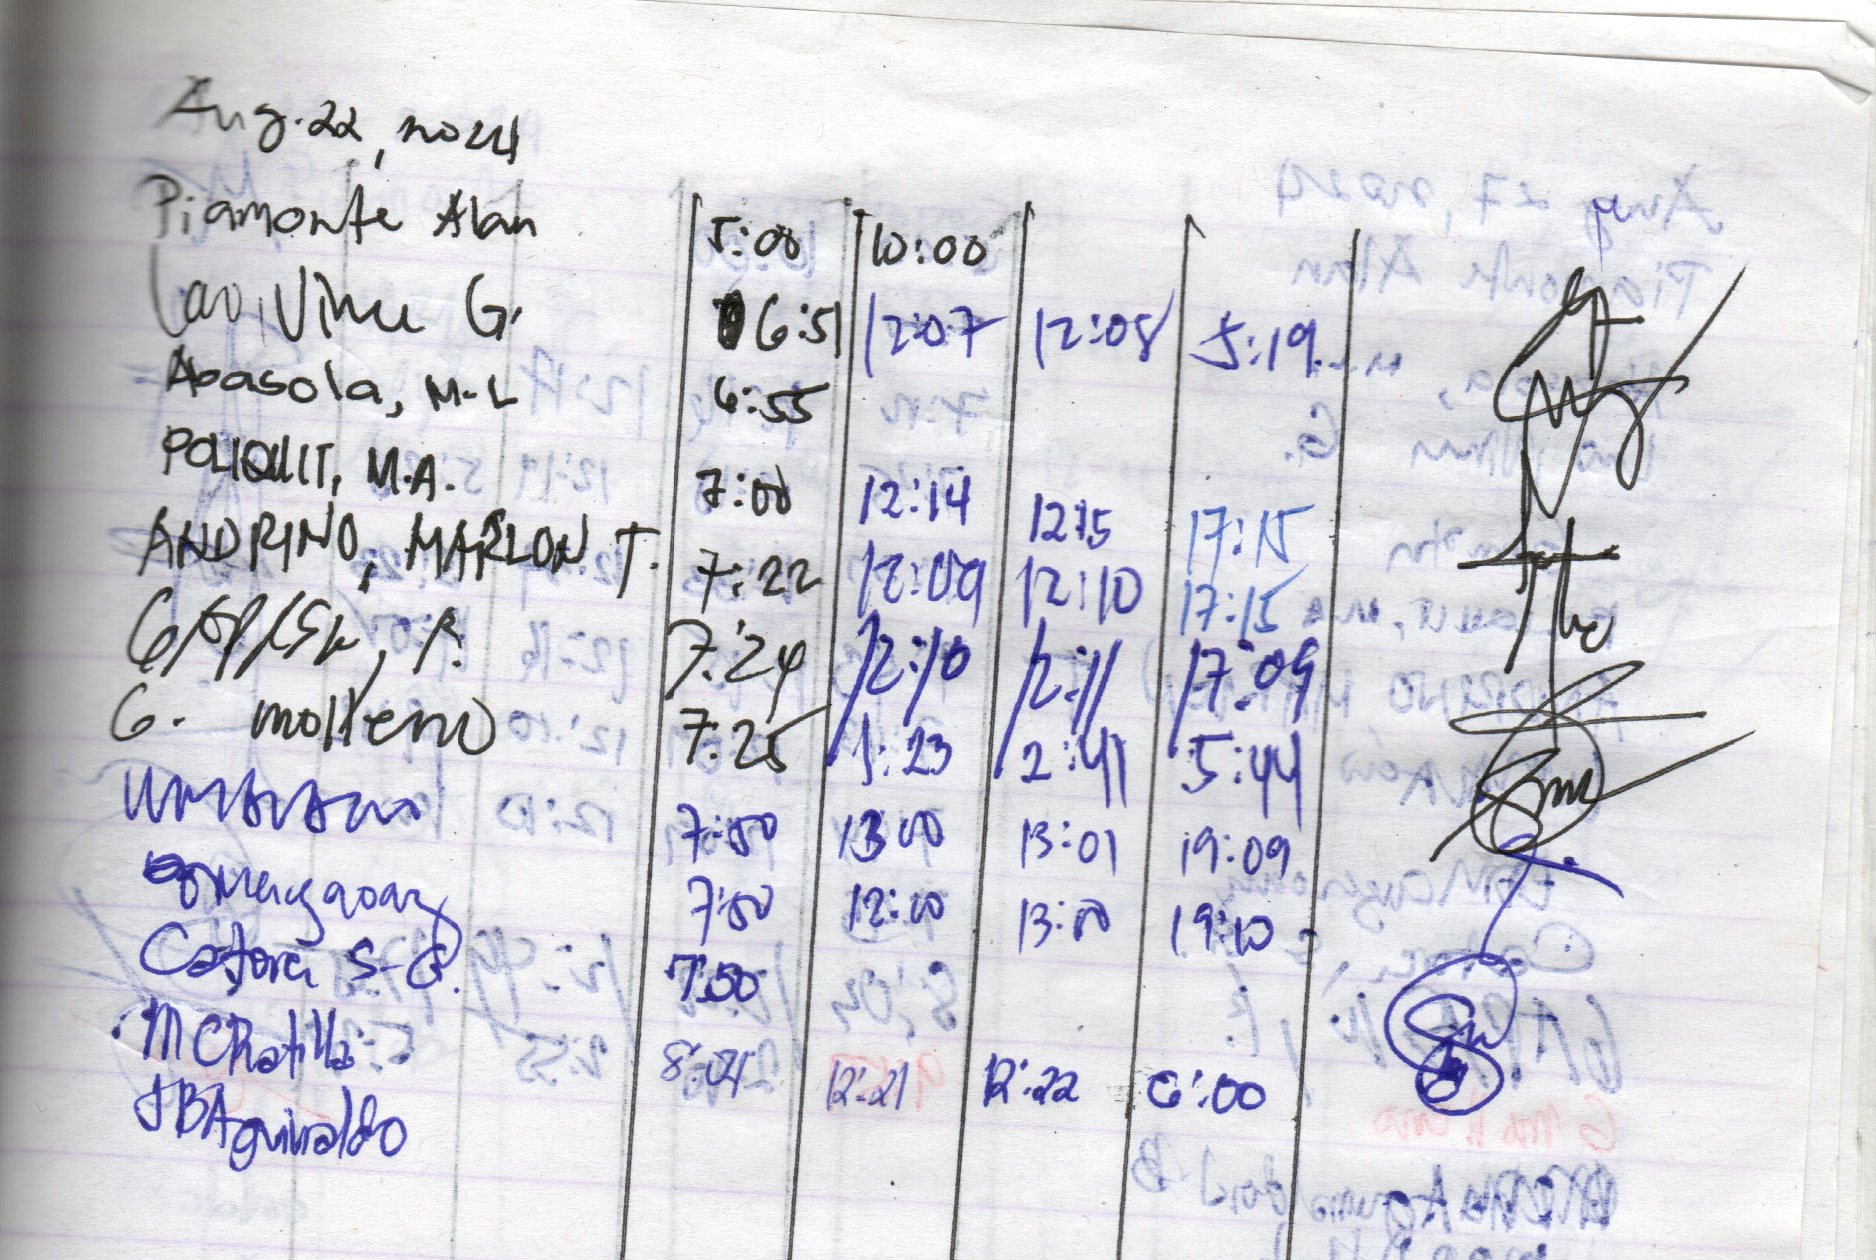 Aug. 22, 2024
Piamonte Alan 5:00 10:00
Lao, Vince G. 6:51 12:07 12:08 5:19
Abasola, M.L 6:55
POLIQUIT, M.A. 7:00 12:14 12:15 17:15
ANDRINO, MARLON T. 7:22 12:09 12:10 17:15
R. 7:24 12:10 12:11 17:09
G. molleno 7:25 1:23 2:41 5:44
7:50 13:00 13:01 19:09
7:50 12:10 13:00 19:10
S. G. 7:50
MCRatilla 8:04 12:21 12:22 6:00
JBAguinaldo